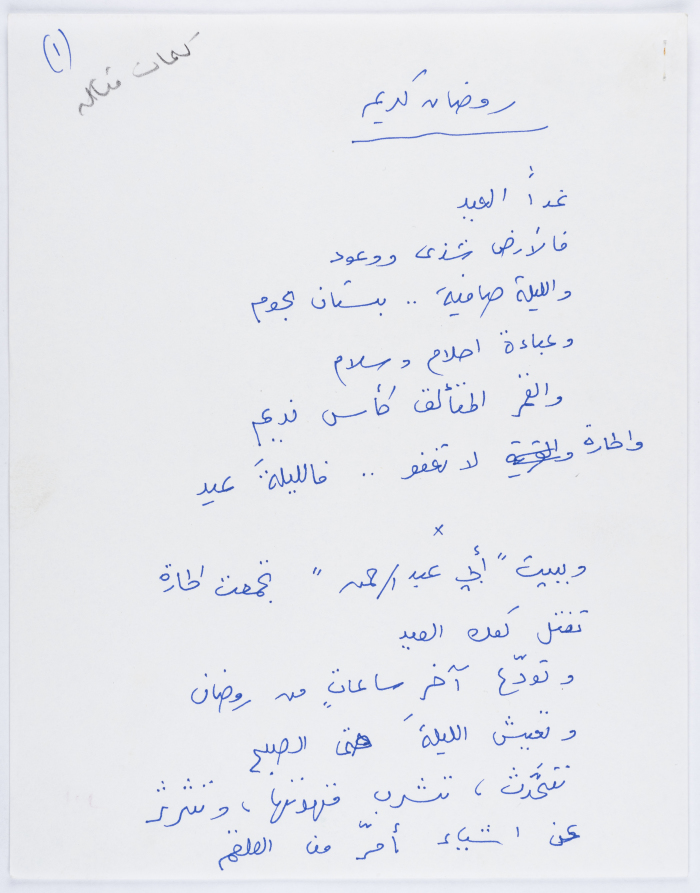 (١)
كلمات مقاله
رمضان كريم
غداً العيد
فالأرض شذى ووعود
والليلة صافية .. بستان نجوم
وعباءة احلام وسلام
والقمر المتألق كأس نديم
والحارة والقرية لا تغفو .. فالليلةَ عيد
وببيت "أبي عبد الرحمن" تجمعت الحارة
تفتل كعك العيد
وتودّع آخر ساعاتٍ من رمضان
وتعيش الليلةَ حتى الصبح
تتحَّدث ، تشرب قهوتها ، وتثرثر
عن اشياء أمرّ من العلقم